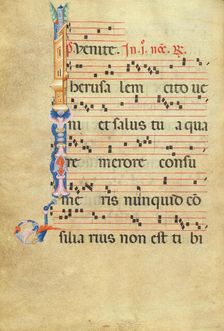 Venite. In .j. noc. R.
Iherusalem cito ve
ni et salus tua qua
re merore consu
meris nunquid co
siliarius non est tibi